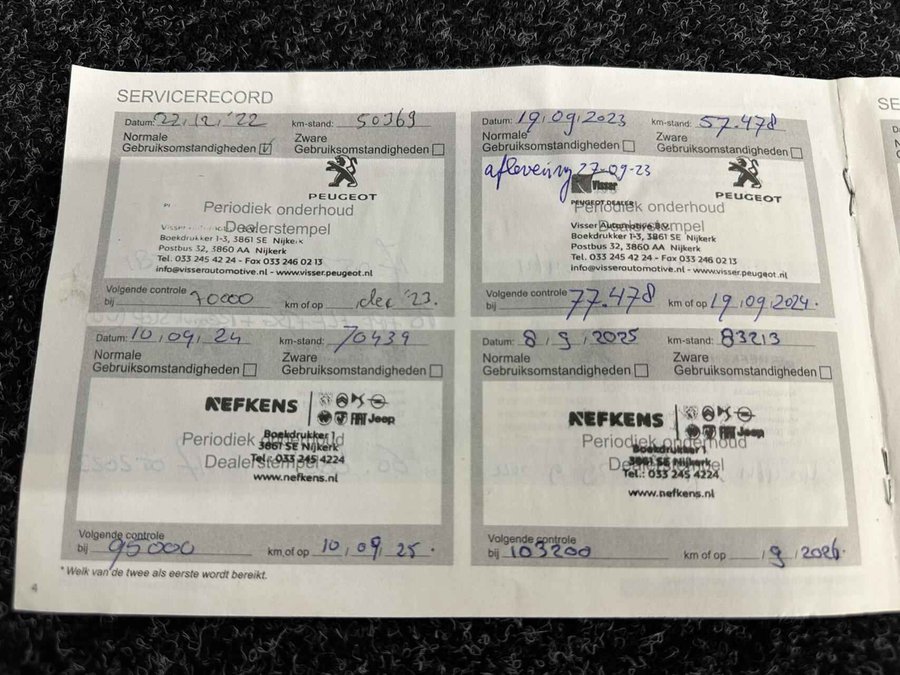 SERVICERECORD
Datum: 22, 12, '22 km-stand: 50369
Normale Gebruiksomstandigheden Zware Gebruiksomstandigheden
PEUGEOT
Periodiek onderhoud
Dealerstempel
Boekdrukker 1-3, 3861 SE Nijkerk
Postbus 32, 3860 AA Nijkerk
Tel. 033 245 42 24 - Fax 033 246 02 13
info@visserautomotive.nl - www.visser.peugeot.nl
Volgende controle
bij 70000 km of op dec '23.
Datum: 19, 09, 2023 km-stand: 57.478
Normale Gebruiksomstandigheden Zware Gebruiksomstandigheden
aflevering 27-09-23
Visser
PEUGEOT DEALER
PEUGEOT
Periodiek onderhoud
Dealerstempel
Visser Automotive
Boekdrukker 1-3, 3861 SE Nijkerk
Postbus 32, 3860 AA Nijkerk
Tel. 033 245 42 24 - Fax 033 246 02 13
info@visserautomotive.nl - www.visser.peugeot.nl
Volgende controle
bij 77.478 km of op 19, 09, 2024.
Datum: 10, 09, 24 km-stand: 70439
Normale Gebruiksomstandigheden Zware Gebruiksomstandigheden
NEFKENS
FIAT Jeep
Periodiek onderhoud
Dealerstempel
Boekdrukker 1
3861 SE Nijkerk
Tel.: 033 245 4224
www.nefkens.nl
Volgende controle
bij 95000 km of op 10, 09, 25.
Datum: 8, 9, 2025 km-stand: 83213
Normale Gebruiksomstandigheden Zware Gebruiksomstandigheden
NEFKENS
FIAT Jeep
Periodiek onderhoud
Dealerstempel
Boekdrukker 1
3861 SE Nijkerk
Tel.: 033 245 4224
www.nefkens.nl
Volgende controle
bij 103200 km of op , 9, 2026.
* Welk van de twee als eerste wordt bereikt.
4
SE